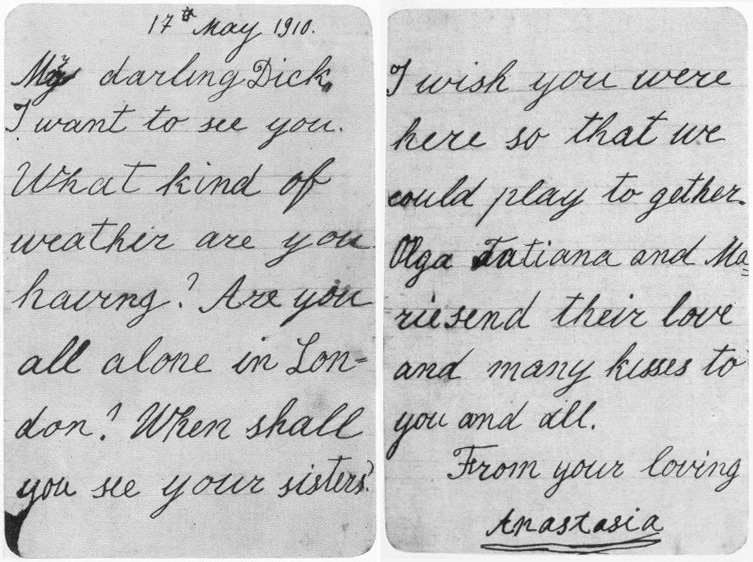 17th May 1910.
My darling Dick,
I want to see you.
What kind of
weather are you
having? Are you
all alone in Lon=
don? When shall
you see your sisters?
I wish you were
here so that we
could play to gether.
Olga Tatiana and Ma=
rie send their love
and many kisses to
you and all.
From your loving
Anastasia